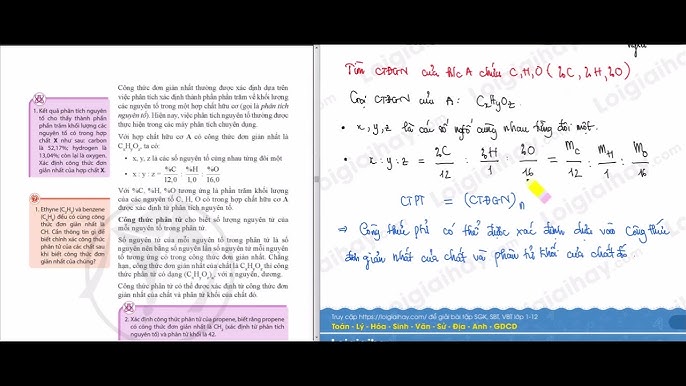 Công thức đơn giản nhất thường được xác định dựa trên
việc phân tích xác định thành phần phần trăm về khối lượng
các nguyên tố trong một hợp chất hữu cơ (gọi là phân tích
nguyên tố). Hiện nay, việc phân tích nguyên tố thường được
thực hiện trong các máy phân tích chuyên dụng.
Với hợp chất hữu cơ A có công thức đơn giản nhất là
CxHyOz, ta có:
• x, y, z là các số nguyên tố cùng nhau từng đôi một
• x : y : z = %C/12,0 : %H/1,0 : %O/16,0
Với %C, %H, %O tương ứng là phần trăm khối lượng
của các nguyên tố C, H, O có trong hợp chất hữu cơ A
được xác định từ phân tích nguyên tố.
Công thức phân tử cho biết số lượng nguyên tử của
mỗi nguyên tố trong phân tử.
Số nguyên tử của mỗi nguyên tố trong phân tử là số
nguyên nên bằng số nguyên lần số nguyên tử mỗi nguyên
tố tương ứng có trong công thức đơn giản nhất. Chẳng
hạn, công thức đơn giản nhất của chất là CxHyOz thì công
thức phân tử có dạng (CxHyOz)n, với n nguyên, dương.
Công thức phân tử có thể được xác định từ công thức đơn
giản nhất của chất và phân tử khối của chất đó.
2. Xác định công thức phân tử của propene, biết rằng propene
có công thức đơn giản nhất là CH2 (xác định từ phân tích
nguyên tố) và phân tử khối là 42.
1. Kết quả phân tích nguyên
tố cho thấy thành phần
phần trăm khối lượng các
nguyên tố có trong hợp
chất X như sau: carbon
là 52,17%; hydrogen là
13,04%; còn lại là oxygen.
Xác định công thức đơn
giản nhất của X.
1. Ethyne (C2H2) và benzene
(C6H6) đều có cùng công
thức đơn giản nhất là
CH. Cần thông tin gì để
biết chính xác công thức
phân tử của các chất sau
khi biết công thức đơn
giản nhất của chúng?
Tìm CTĐGN của h/c A chứa C, H, O (%C, %H, %O)
Gọi CTĐGN của A: CxHyOz
• x, y, z là các số ngtố cùng nhau từng đôi một.
• x : y : z = %C/12 : %H/1 : %O/16 = mC/12 : mH/1 : mO/16
CTPT = (CTĐGN)n
⇒ Công thức ptử có thể được xác định dựa vào công thức
đơn giản nhất của chất và phân tử khối của chất đó.
Truy cập https://loigiaihay.com/ để giải bài tập SGK, SBT, VBT lớp 1-12
Toán - Lý - Hóa - Sinh - Văn - Sử - Địa - Anh - GDCD
Loigiaihay